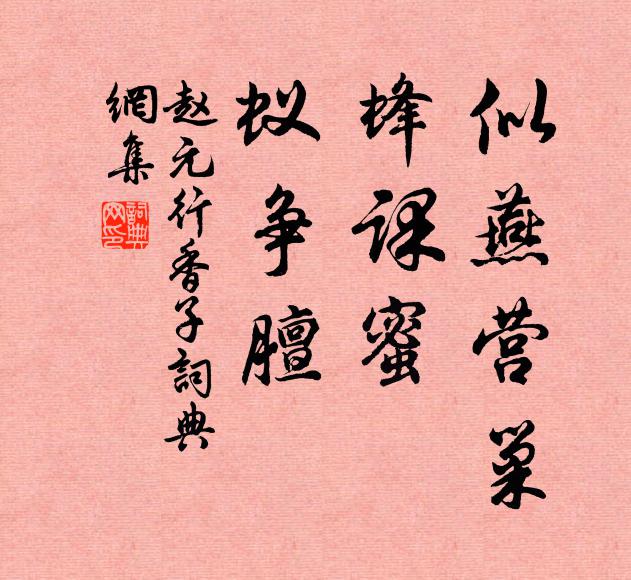 似燕营巢
蜂课蜜
蚁争膻
赵元行香子詞典
網集
詞典
网印